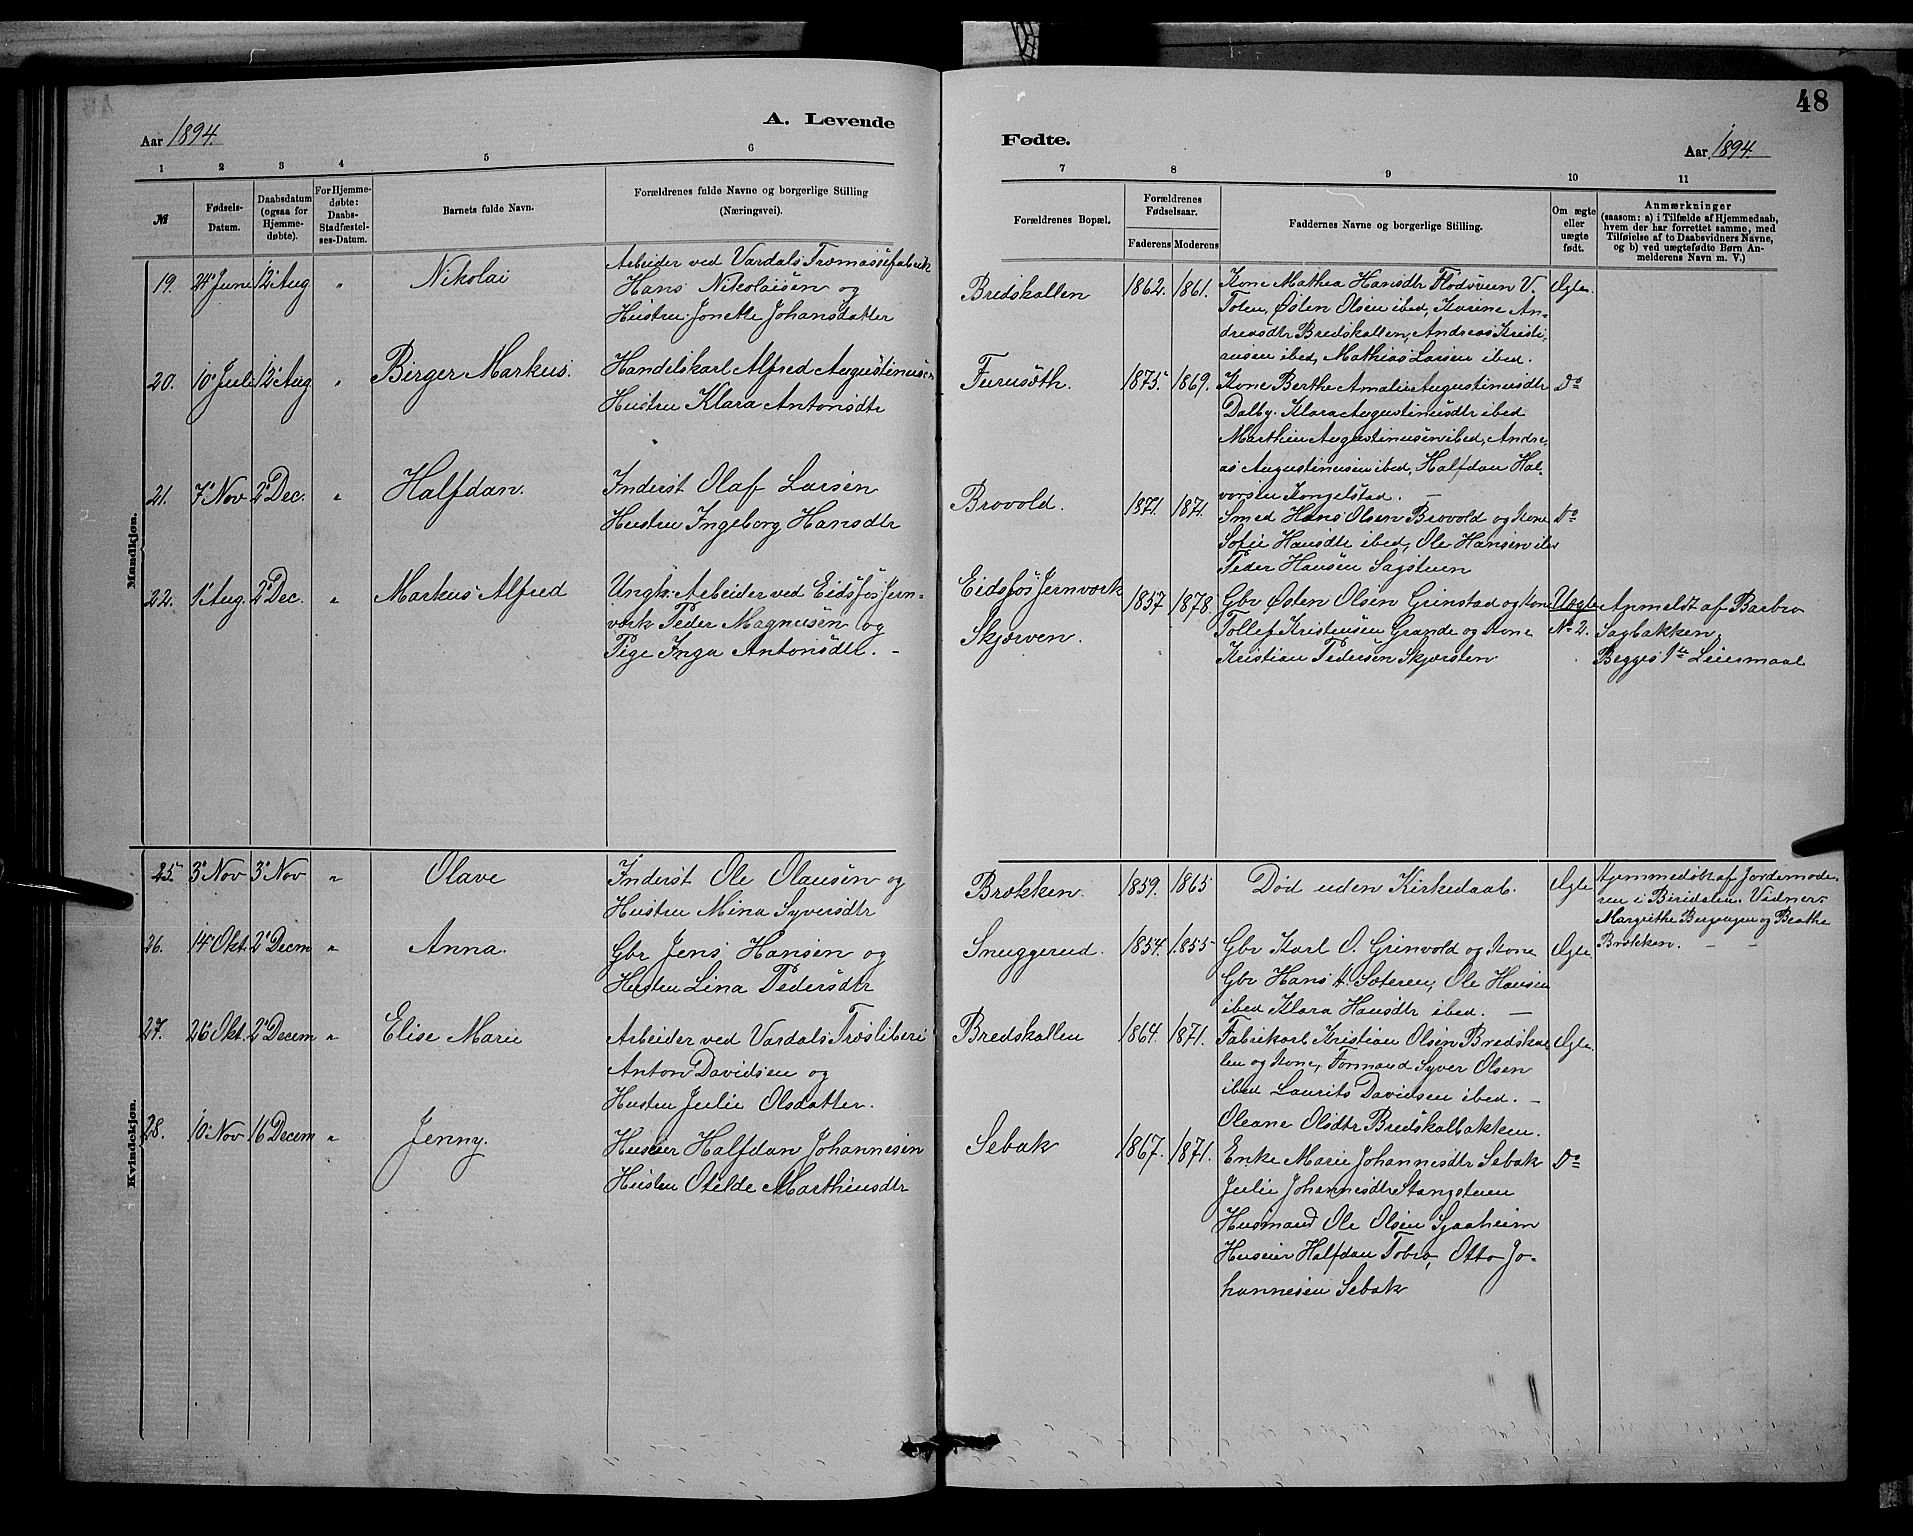 48
Aar 1894.
A. Levende
Fødte.
Aar 1894.
1 2 3 4 5 6 7 8 9 10 11
№
Fødsels-
Datum.
Daabsdatum
(ogsaa for
Hjemme-
døbte).
For Hjemme-
døbte:
Daabs-
Stadfæstel-
ses-Datum.
Barnets fulde Navn.
Forældrenes fulde Navne og borgerlige Stilling
(Næringsvei).
Forældrenes Bopæl.
Forældrenes
Fødselsaar.
Faderens Moderens
Faddernes Navne og borgerlige Stilling.
Om ægte
eller
uægte
født.
Anmærkninger
(saasom: a) i Tilfælde af Hjemmedaab,
hvem der har forrettet samme, med
Tilføielse af to Daabsvidners Navne,
og b) ved uægtefødte Børn An-
melderens Navn m. V.)
Mandkjøn.
19. 24 Juni 12 Aug " Nikolai
Arbeider ved Vardals Træmassefabrik
Hans Nikolaisen og
Hustru Jonette Johansdatter
Bredskallen 1862. 1861.
Kone Mathea Hansdtr Flodsveen V.
Toten, Østen Olsen ibed, Karine An-
dreasdtr Bredskallen, Andreas Kristi-
ansen ibed, Mathias Larsen ibed.
Ægte.
20. 10 Juli 12 Aug " Birger Markus.
Handelskarl Alfred Augustinusen
Hustru Klara Antonsdtr
Furusøth. 1875. 1869.
Kone Berthe Amalie Augustinusdtr
Dalby. Klara Augustinusdtr ibed
Marthin Augustinusen ibed, Andre-
as Augustinusen ibed, Halfdan Hal-
vorsen Kongelstad. —
Do
21. 7 Nov 2 Dec. " Halfdan.
Inderst Olaf Larsen
Hustru Ingeborg Hansdtr
Brovold. 1871. 1871.
Smed Hans Olsen Brovold og Kone
Sofie Hansdtr ibed, Ole Hansen ibed
Peder Hansen Sagstuen
Do
22. 1 Aug. 2 Dec. " Markus Alfred
Ungk. Arbeider ved Eidsfos Jern-
værk Peder Magnusen og
Pige Inga Antonsdtr. -
Eidsfos Jernværk
Skjærven. 1857 1878.
Gbr Østen Olsen Grinstad og Kone
Tollef Kristensen Grande og Kone
Kristian Pedersen Skjærsten
Uægte
No 2.
Anmeldt af Barbro
Sagbakken.
Begges 1te Leiermaal
Kvindekjøn.
25. 3 Nov 3 Nov " Olave
Inderst Ole Olausen og
Hustru Mina Syversdtr
Brokken. 1859. 1865
Død uden Kirkedaab.
Ægte
Hjemmedøbt af Jordemode-
ren i Biridalen. Vidner
Margrethe og Beathe
Brokken. — —
26. 14 Okt. 2 Decem " Anna.
Gbr Jens Hansen og
Hustru Lina Pedersdtr
Snuggerud. 1854. 1855
Gbr Karl O. Grinvold og Kone
Gbr Hans H. Sæteren, Ole Hansen
ibed Klara Hansdtr ibed. —
Ægte.
27. 26 Okt. 2 Decem " Elise Marie
Arbeider ved Vardals Træsliberi
Anton Davidsen og
Hustru Julie Olsdatter.
Bredskallen 1864. 1871.
Fabrikarb Kristian Olsen Bredskal-
len og Kone, Formand Syver Olsen
ibed Laurits Davidsen ibed. —
Oleane Olsdtr Bredskalbakken.
Ægte.
28. 10 Nov 16 Decem " Jenny.
Huseier Halfdan Johannesen
Hustru Otelde Marthinsdtr
Sebak 1867. 1871.
Enke Marie Johannesdtr Sebak
Julie Johannesdtr Stangstuen
Husmand Ole Olsen Sjaaheim
Huseier Halfdan Tobro, Otto Jo-
hannesen Sebak
Do